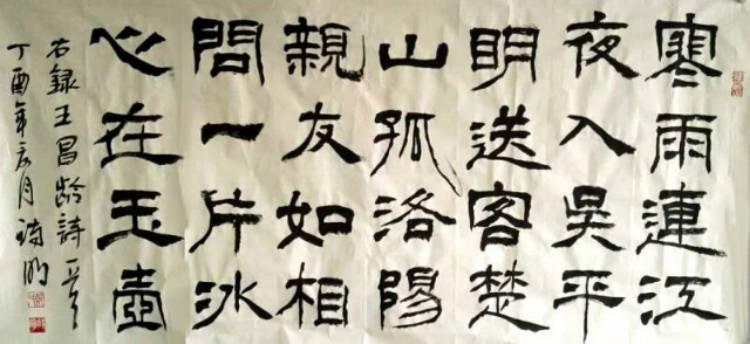 寒雨連江
夜入吳平
明送客楚
山孤洛陽
親友如相
問一片冰
心在玉壺
右録王昌齡詩一首
丁酉年